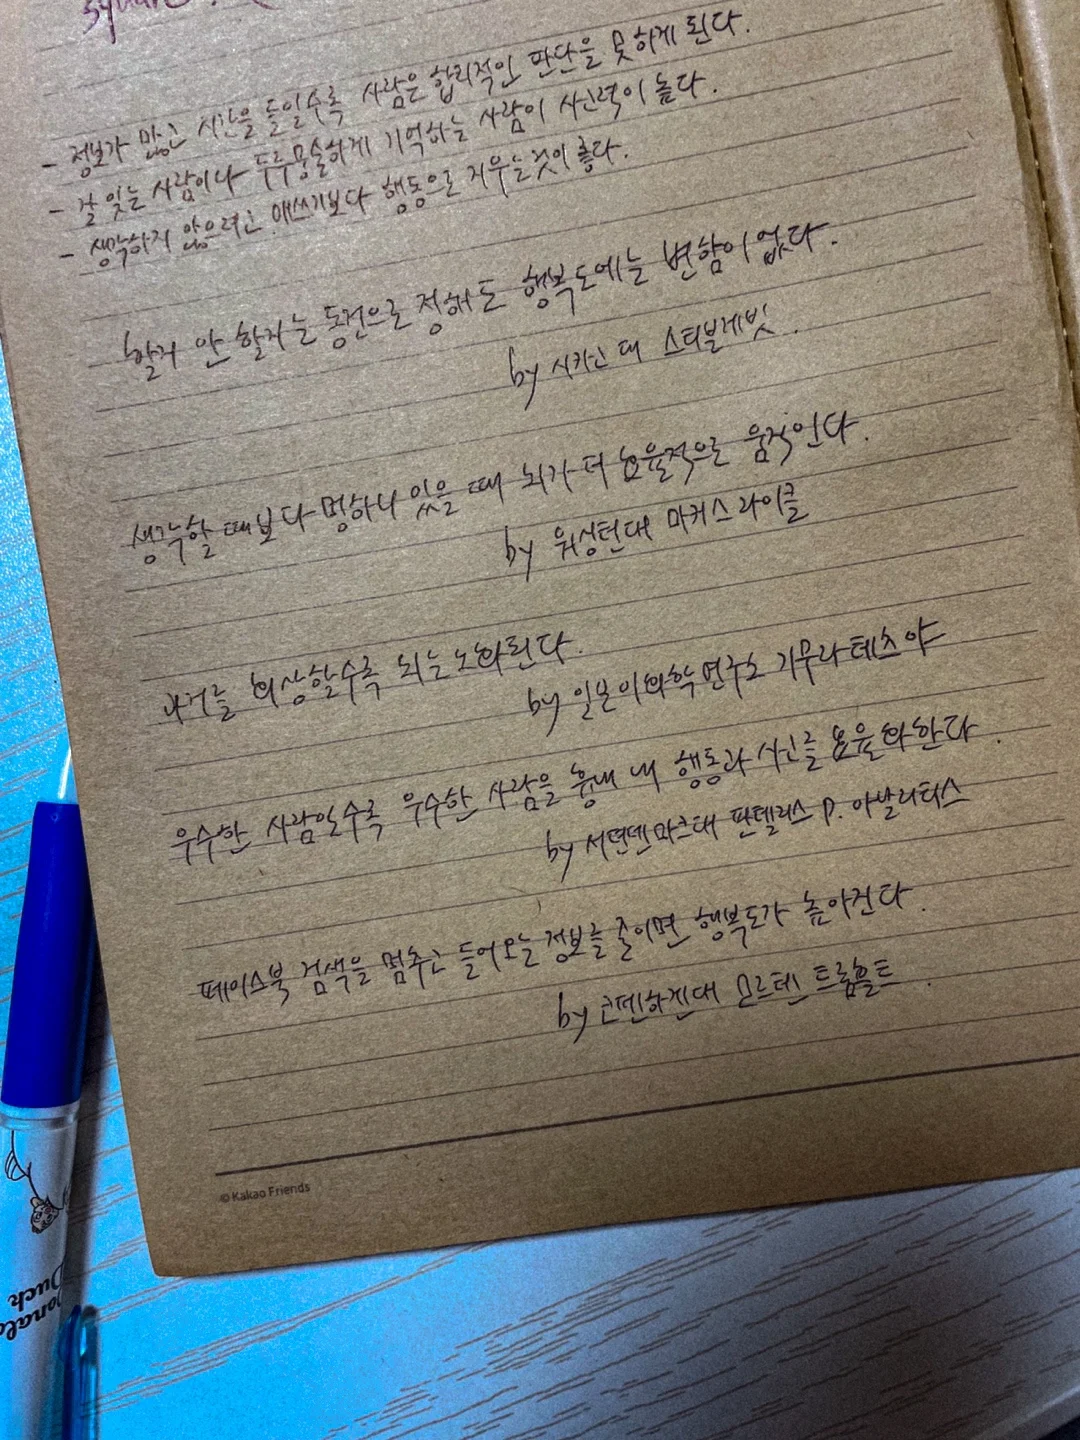 square.
- 정보가 많고 시간을 들일수록 사람은 합리적인 판단을 못하게 된다.
- 잘 잊는 사람이나 두루뭉술하게 기억하는 사람이 사고력이 높다.
- 생각하지 않으려고 애쓰기보다 행동으로 지우는것이 좋다.
할지 안 할지는 동전으로 정해도 행복도에는 변함이 없다.
by 시카고대 스티븐레빗.
생각할 때보다 멍하니 있을 때 뇌가 더 효율적으로 움직인다.
by 워싱턴대 마커스 라이클
과거를 회상할수록 뇌는 노화된다.
by 일본이화학연구소 기무라 테츠야
우수한 사람일수록 우수한 사람을 흉내 내 행동과 사고를 효율화한다.
by 서던덴마크대 판텔리스 P. 아날리티스
페이스북 검색을 멈추고 들어오는 정보를 줄이면 행복도가 높아진다.
by 코펜하겐대 모르텐 트롬홀트.
© Kakao Friends
Donald
Duck